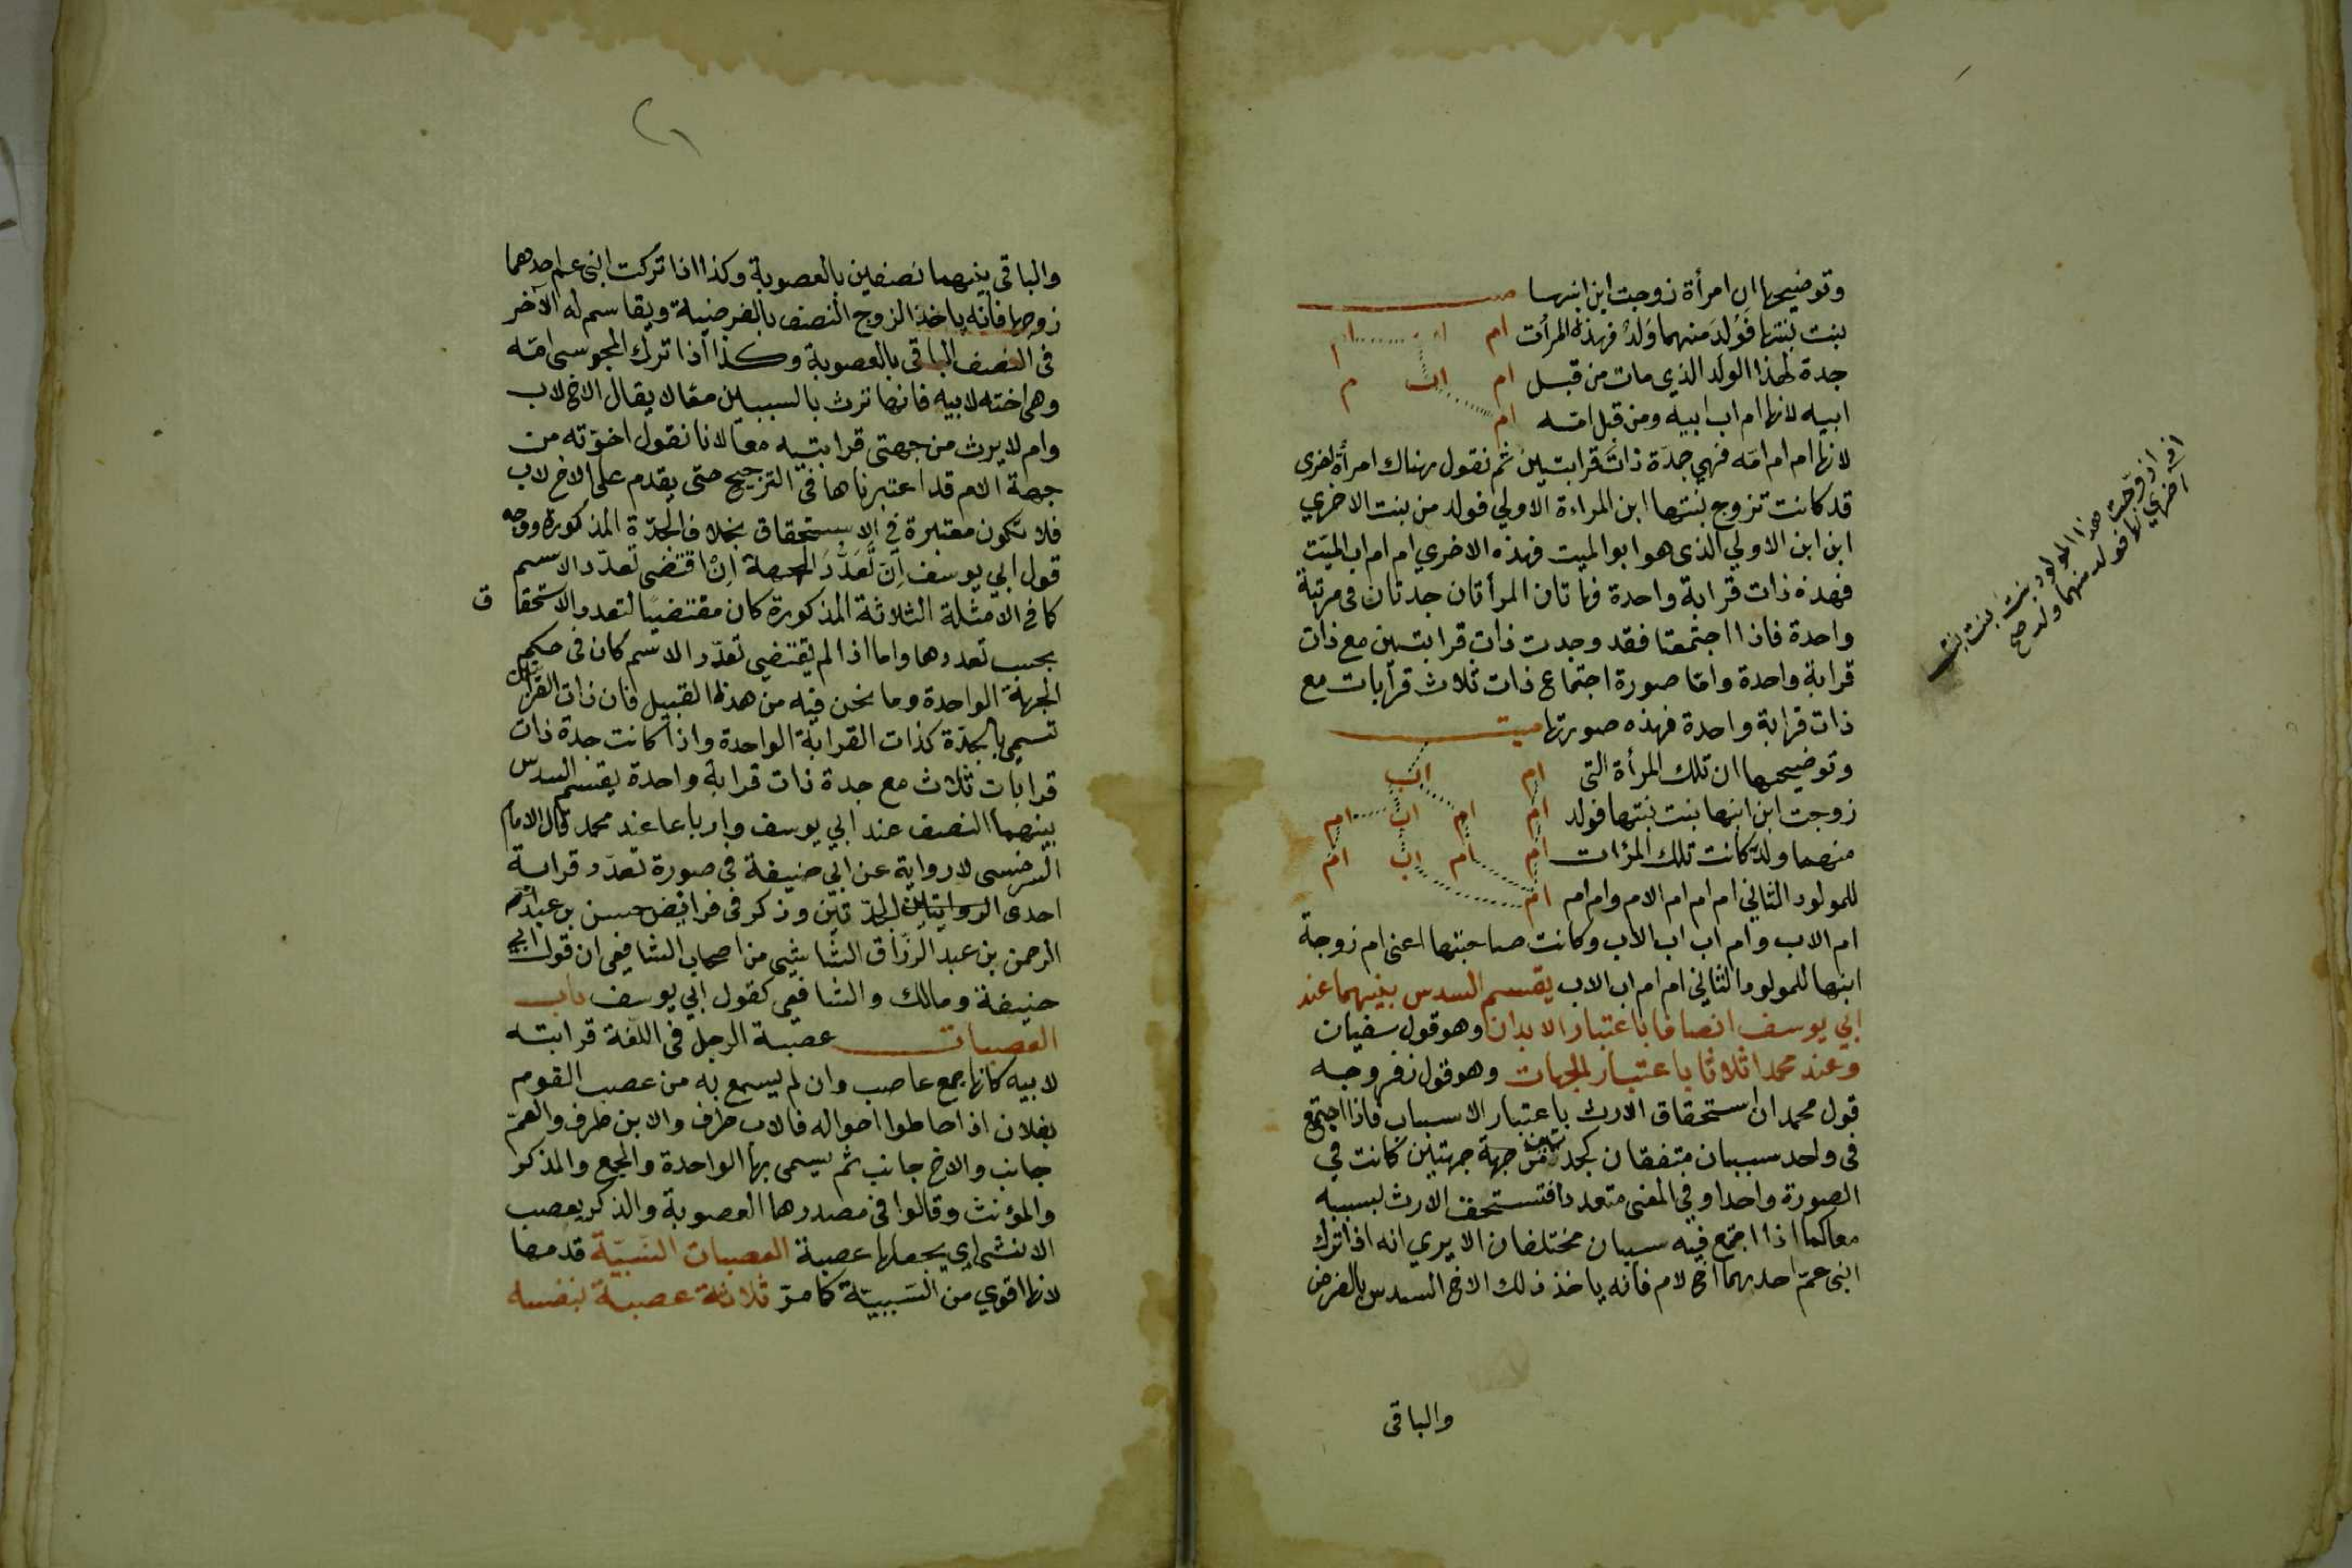 وتوضيحها ان امرأة زوجت ابن ابنها ميت
بنت بنتها فَوُلِدَ منهما وَلَدٌ فهذه المرأت ام
جدة لهذا الولد الذي مات من قبل ام اب ام
ابيه لانها ام اب ابيه ومن قبل امّه ام
لانها ام ام امّه فهي جدّة ذات قرابتين ثم نقول هناك امرأة اخرى
قد كانت تزوج بنتها ابن المراءة الاولي فولد من بنت الاخري
ابن ابن الاولي الذى هو ابو الميت فهذه الاخري ام ام اب الميّت
فهذه ذات قرابة واحدة فهاتان المرأتان جدتان فى مرتبة
واحدة فاذا اجتمعتا فقد وجدت ذات قرابتين مع ذات
قرابة واحدة وامّا صورة اجتماع ذات ثلاث قرابات مع
ذات قرابة واحدة فهذه صورتها ميت
وتوضيحها ان تلك المرأة التى ام اب
زوجت ابن ابنها بنت بنتها فولد ام ام اب ام
منهما ولد كانت تلك المرٔات ام ام اب ام
للمولود الثاني ام ام ام الام وام ام ام
ام الاب وام اب اب الاب وكانت صاحبتها اعنى ام زوجة
ابنها للمولود الثاني ام ام اب الاب يقسم السدس بينهما عند
ابي يوسف انصافا باعتبار الابدان وهو قول سفيان
وعند محمد اثلاثا باعتبار الجهات وهو قول زفر وجه
قول محمد ان استحقاق الارث باعتبار الاسباب فاذا اجتمع
فى واحد سببان متفقان كجدة من جهة جهتين كانت في
الصورة واحدا وفي المعنى متعددا فتستحق الارث بسببه
معا كما اذا اجتمع فيه سببان مختلفان الا يري انه اذا ترك
ابنى عمّ احدهما اخ لام فانه ياخذ ذلك الاخ السدس بالفرض
والباقى
اذا زوّجت هذا المولود بنت بنت بنت
اخري لها فولد منهما ولد صح
والباقى بينهما نصفين بالعصوبة وكذا اذا تركت ابنى عم احدهما
زوجها فانه ياخذ الزوج النصف بالفرضية ويقاسم له الآخر
فى النصف الباقى بالعصوبة وكذا اذا ترك المجوسى امّه
وهى اخته لابيه فانها ترث بالسببين معًا لا يقال الاخ لاب
وام لا يرث من جهتى قرابتيه معا لانا نقول اخوّته من
جهة الام قد اعتبرناها فى الترجيح حتى يقدم على الاخ لاب
فلا تكون معتبرة في الاستحقاق بخلاف الجدّة المذكورة ووجه
قول ابي يوسف اِنّ تَعَدُّدَ الجهة اِنْ اقتضى تعدّد الاسم
كما فى الامثلة الثلاثة المذكورة كان مقتضيا لتعدد الاستحقاق
بحسب تعددها واما اذا لم يقتضي تعدّد الاسم كان فى حكم
الجهة الواحدة وما نحن فيه من هذا القبيل فان ذات القرابتين
تسمى بالجدّة كذات القرابة الواحدة واذا كانت جدة ذات
قرابات ثلاث مع جدة ذات قرابة واحدة يقسم السدس
بينهما النصف عند ابي يوسف وارباعا عند محمد قال الامام
السرخسى لا رواية عن ابي حنيفة فى صورة تعدّد قرابة
احدى الجدّتين وذكر فى فرايض حسن بن عبد
الرحمن بن عبد الرزّاق الشاشي من اصحاب الشافعى ان قول ابي
حنيفة ومالك والشافعى كقول ابي يوسف باب
العصبات عصبة الرجل فى اللّغة قرابته
لابيه كانها جمع عاصب وان لم يسمع به من عصب القوم
بفلان اذا احاطوا حواله فالاب طرف والابن طرف والعمّ
جانب والاخ جانب ثم يسمى بها الواحدة والجمع والمذكر
والمؤنث وقالوا فى مصدرها العصوبة والذكر يعصب
الانثى اي يجعلها عصبة العصبات النّسبيّة قدمها
لانها اقوي من السَببيّة كما مرّ ثلاثة عصبة بنفسه